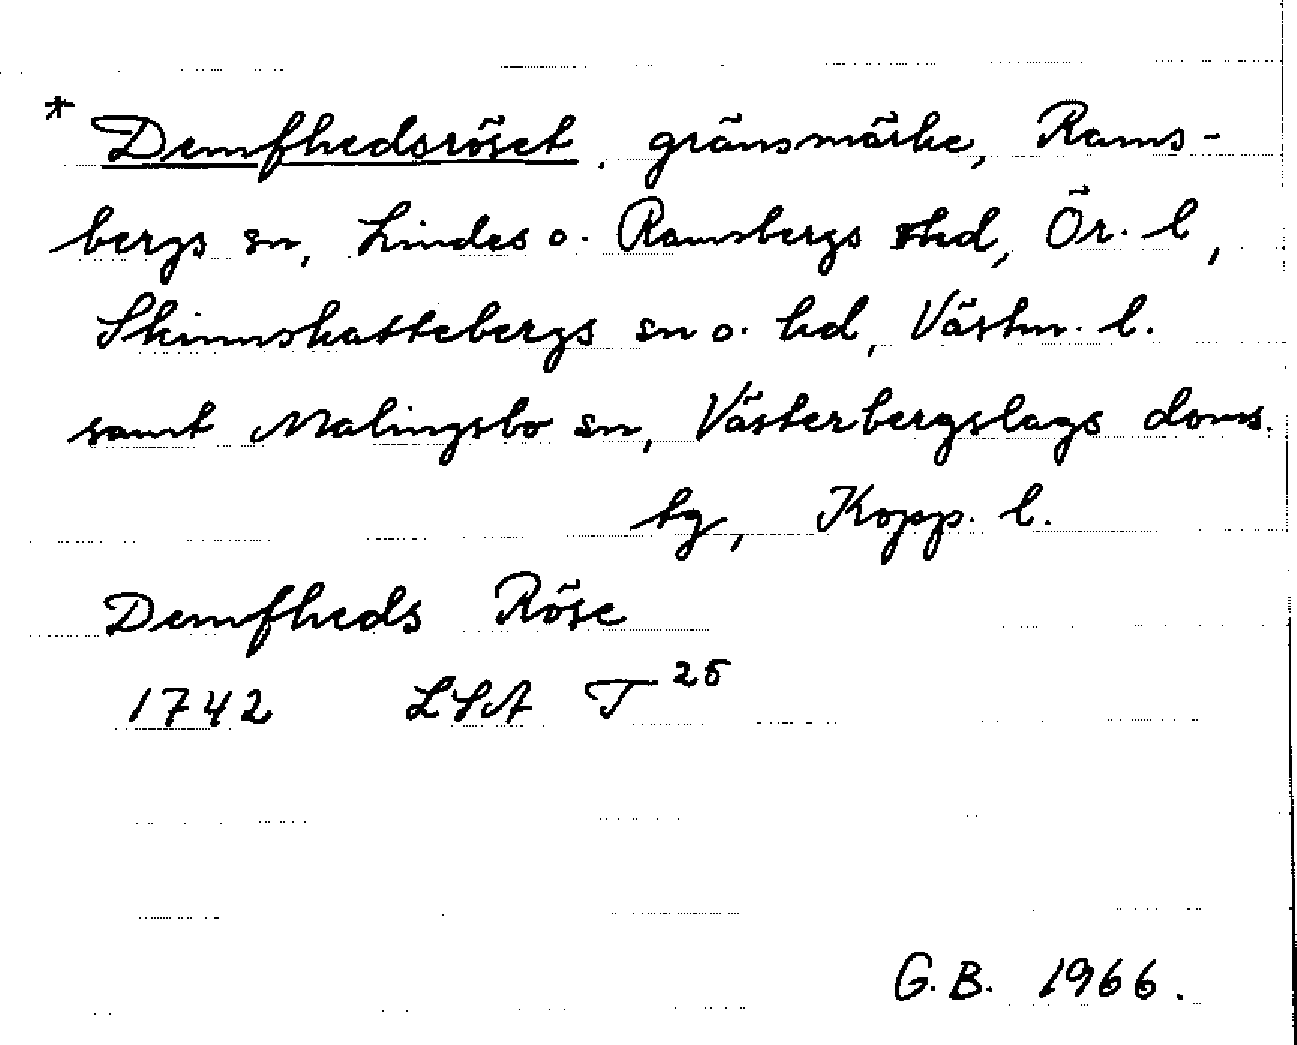 * Demfhedsröset, gränsmärke, Rams-
bergs sn, Lindes o. Ramsbergs hd, Ör. l,
Skinnskattebergs sn o. hd, Västm. l.
samt Malingsbo sn, Västerbergslags doms.
tg, Kopp. l.
Demfheds Röse
1742 LSA T 25
G.B. 1966.